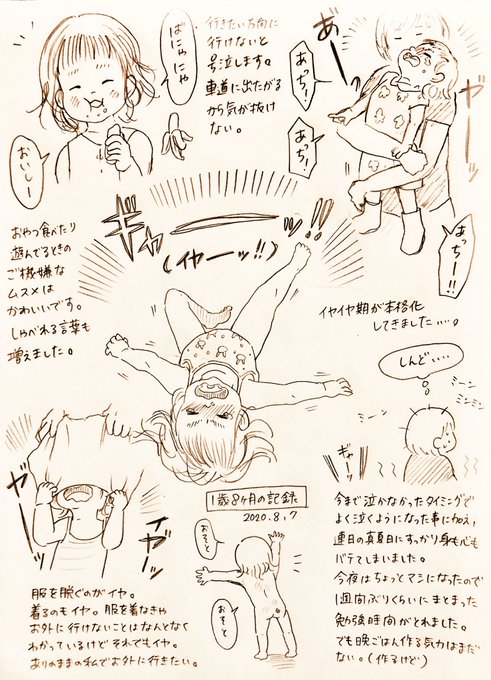 ばにゃにゃ
おいしー
行きたい方向に
行けないと
号泣します。
車道に出たがる
から気が抜け
ない。
あっち!
あっち!
あっちー!!
おやつ食べたり
遊んでるときの
ご機嫌な
ムスメは
かわいいです。
しゃべれる言葉も
増えました。
ギャーッ!!
(イヤーッ!!)
イヤイヤ期が本格化
してきました…。
しんどい…
ミーン
ミンミン
ミーン
ギャーッ
今まで泣かなかったタイミングで
よく泣くようになった事に加え、
連日の真夏日にすっかり身も心も
バテてしまいました。
今夜はちょっとマシになったので
1週間ぶりくらいにまとまった
勉強時間がとれました。
でも晩ごはん作る気力はまだ
ない。(作るけど)
イヤーッ
1歳8ヶ月の記録
2020.8.7
おそと
おそと
服を脱ぐのがイヤ。
着るのもイヤ。服を着なきゃ
お外に行けないことはなんとなく
わかっているけどそれでもイヤ。
ありのままの私でお外に行きたい。